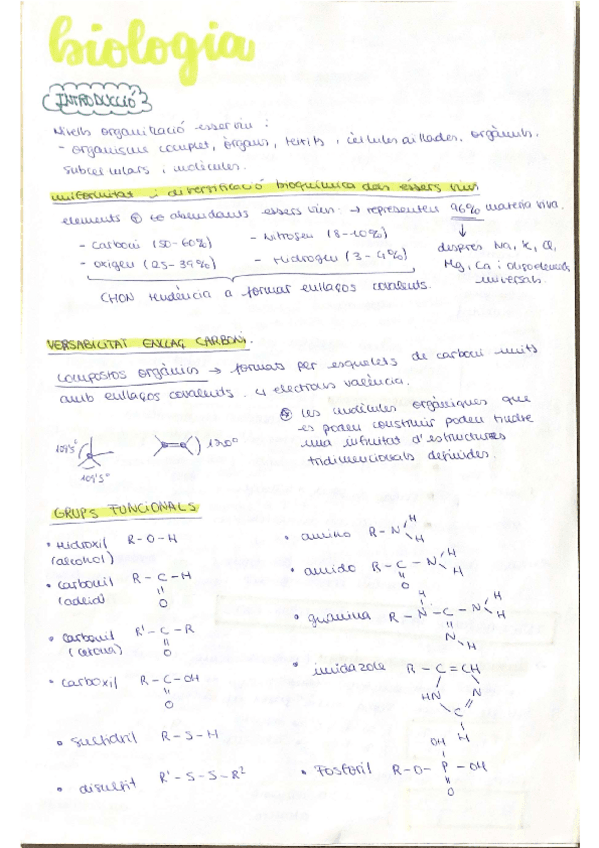 biologia
INTRODUCCIÓ
Nivells organització ésser viu:
- organisme complet, òrgans, teixits i cèl·lules aïllades, orgànuls.
subcel·lulars i molècules.
uniformitat i diversificació bioquímica dels éssers vius
elements ⊕ abundants éssers vius: → representen 96% matèria viva.
- Carboni (50-60%)
- Nitrogen (8-10%)
- oxigen (25-39%)
- Hidrogen (3-4%)
↓
després Na, K, Cl,
Mg, Ca i oligoelements
universals.
CHON tendència a formar enllaços covalents.
VERSABILITAT ENLLAÇ CARBONI.
compostos orgànics → formats per esquelets de carboni units
amb enllaços covalents. 4 electrons valència.
les molècules orgàniques que
es poden construir poden tindre
una infinitat d'estructures
tridimencionals definides.
109'5°
109'5°
120°
GRUPS FUNCIONALS
• Hidroxil R-O-H
(alcohol)
• carbonil R-C-H
(aldeid) O
• carbonil R'-C-R
(cetona) O
• carboxil R-C-OH
O
• sulfidril R-S-H
• disulfit R'-S-S-R²
• amino R-N H
H
• amido R-C-N H
O H
• guanina R-N-C-N H
H N-H H
• imidazole R-C=CH
HN N
C
H
• Fosforil R-O-P-OH
OH
O